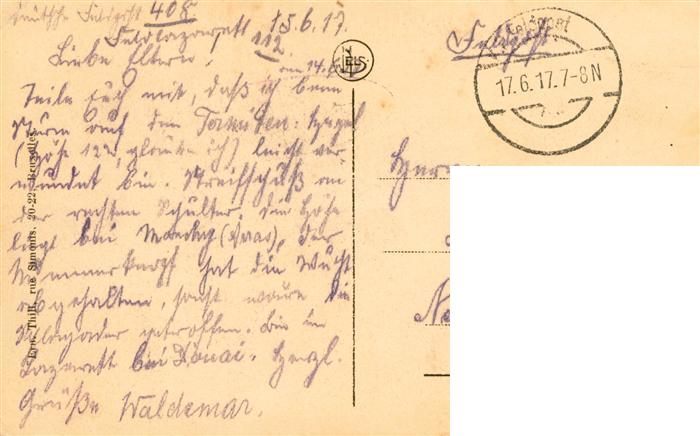 Deutsche Feldpost 408
Feldlazarett 112. 15.6.17.
Liebe Eltern, am 14.6.
Teile Euch mit, daß ich beim
Sturm auf den
(Höhe 122, glaube ich) leicht ver-
wundet bin. Streifschuß an
der rechten Schulter. Die Höhe
liegt bei (Arras), der
hat die Wucht
abgehalten, sonst wäre die
Schlagader getroffen. Bin im
Lazarett bei Douai. Herzl.
Grüße Waldemar.
Ern. Thill, rue Simonis, 20-22, Bruxelles
ELS
Feldpost
Feldpost
17.6.17.7-8N
Herrn